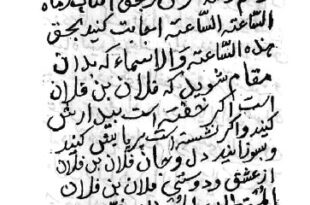 الساعته الساعته اجابت کنید بحق
هذه الساعته والاسماء که بدان
مقام شوید که فلان بن فلان
است اکر خفته است بیدارش
کنید واکر نشسته است بر پایش کنید
وبسوزانید دل وجان فلان بن فلان
از عشق ودوستی فلان بن فلان